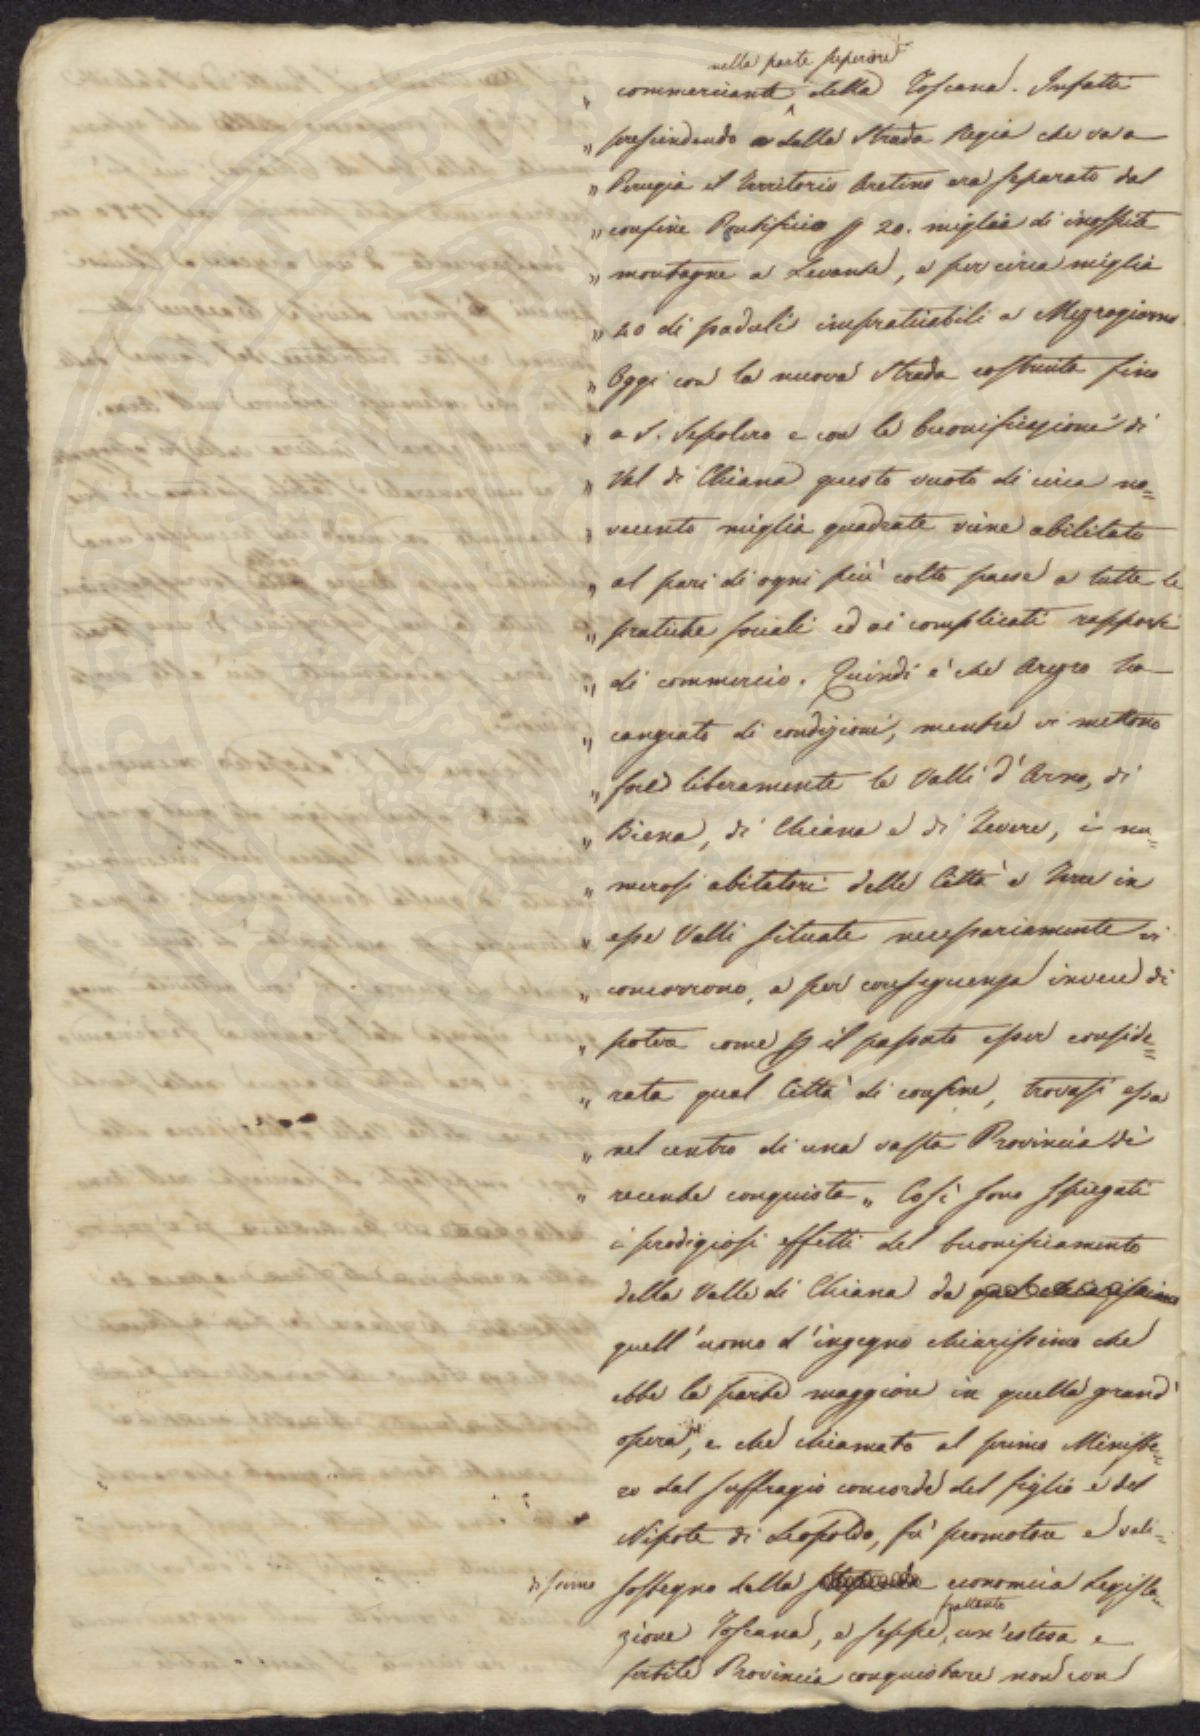 nella parte superiore
„ commerciante della Toscana. Infatti
„ prescindendo dalla Strada Regia che va a
„ Perugia il Territorio Aretino era separato dal
„ confine Pontificio p 20. miglia di inospite
„ montagne a Levante, e per circa miglia
„ 40 di paduli impraticabili a Mezzogiorno.
„ Oggi con la nuova Strada costruita fino
„ a S. Sepolcro e con le buonificazioni di
„ Val di Chiana questo vuoto di circa no=
„ vecento miglia quadrate viene abilitato
„ al pari di ogni più colto paese a tutte le
„ pratiche sociali ed ai complicati rapporti
„ di commercio. Quindi è che Arezzo ha
„ cangiato di condizioni, mentre vi mettono
„ foce liberamente le Valli d'Arno, di
„ Biena, di Chiana e di Tevere, i nu=
„ merosi abitatori delle Città e Terre in
„ esse Valli situate necessariamente vi
„ concorrono, e per conseguenza invece di
„ poter come p il passato esser conside=
„ rata qual Città di confine, trovasi essa
„ nel centro di una vasta Provincia di
„ recente conquista „ Così sono spiegati
i prodigiosi effetti del buonificamento
della Valle di Chiana da
quell'uomo d'ingegno chiarissimo che
ebbe la parte maggiore in quella grand'
opera, e che chiamato al primo Ministe=
ro dal suffragio concorde del figlio e del
Nipote di Leopoldo, fù promotore e vali=
di sommo sostegno della economica Legisla=
zione Toscana, e seppe frattanto un'estesa e
fertile Provincia conquistare non con